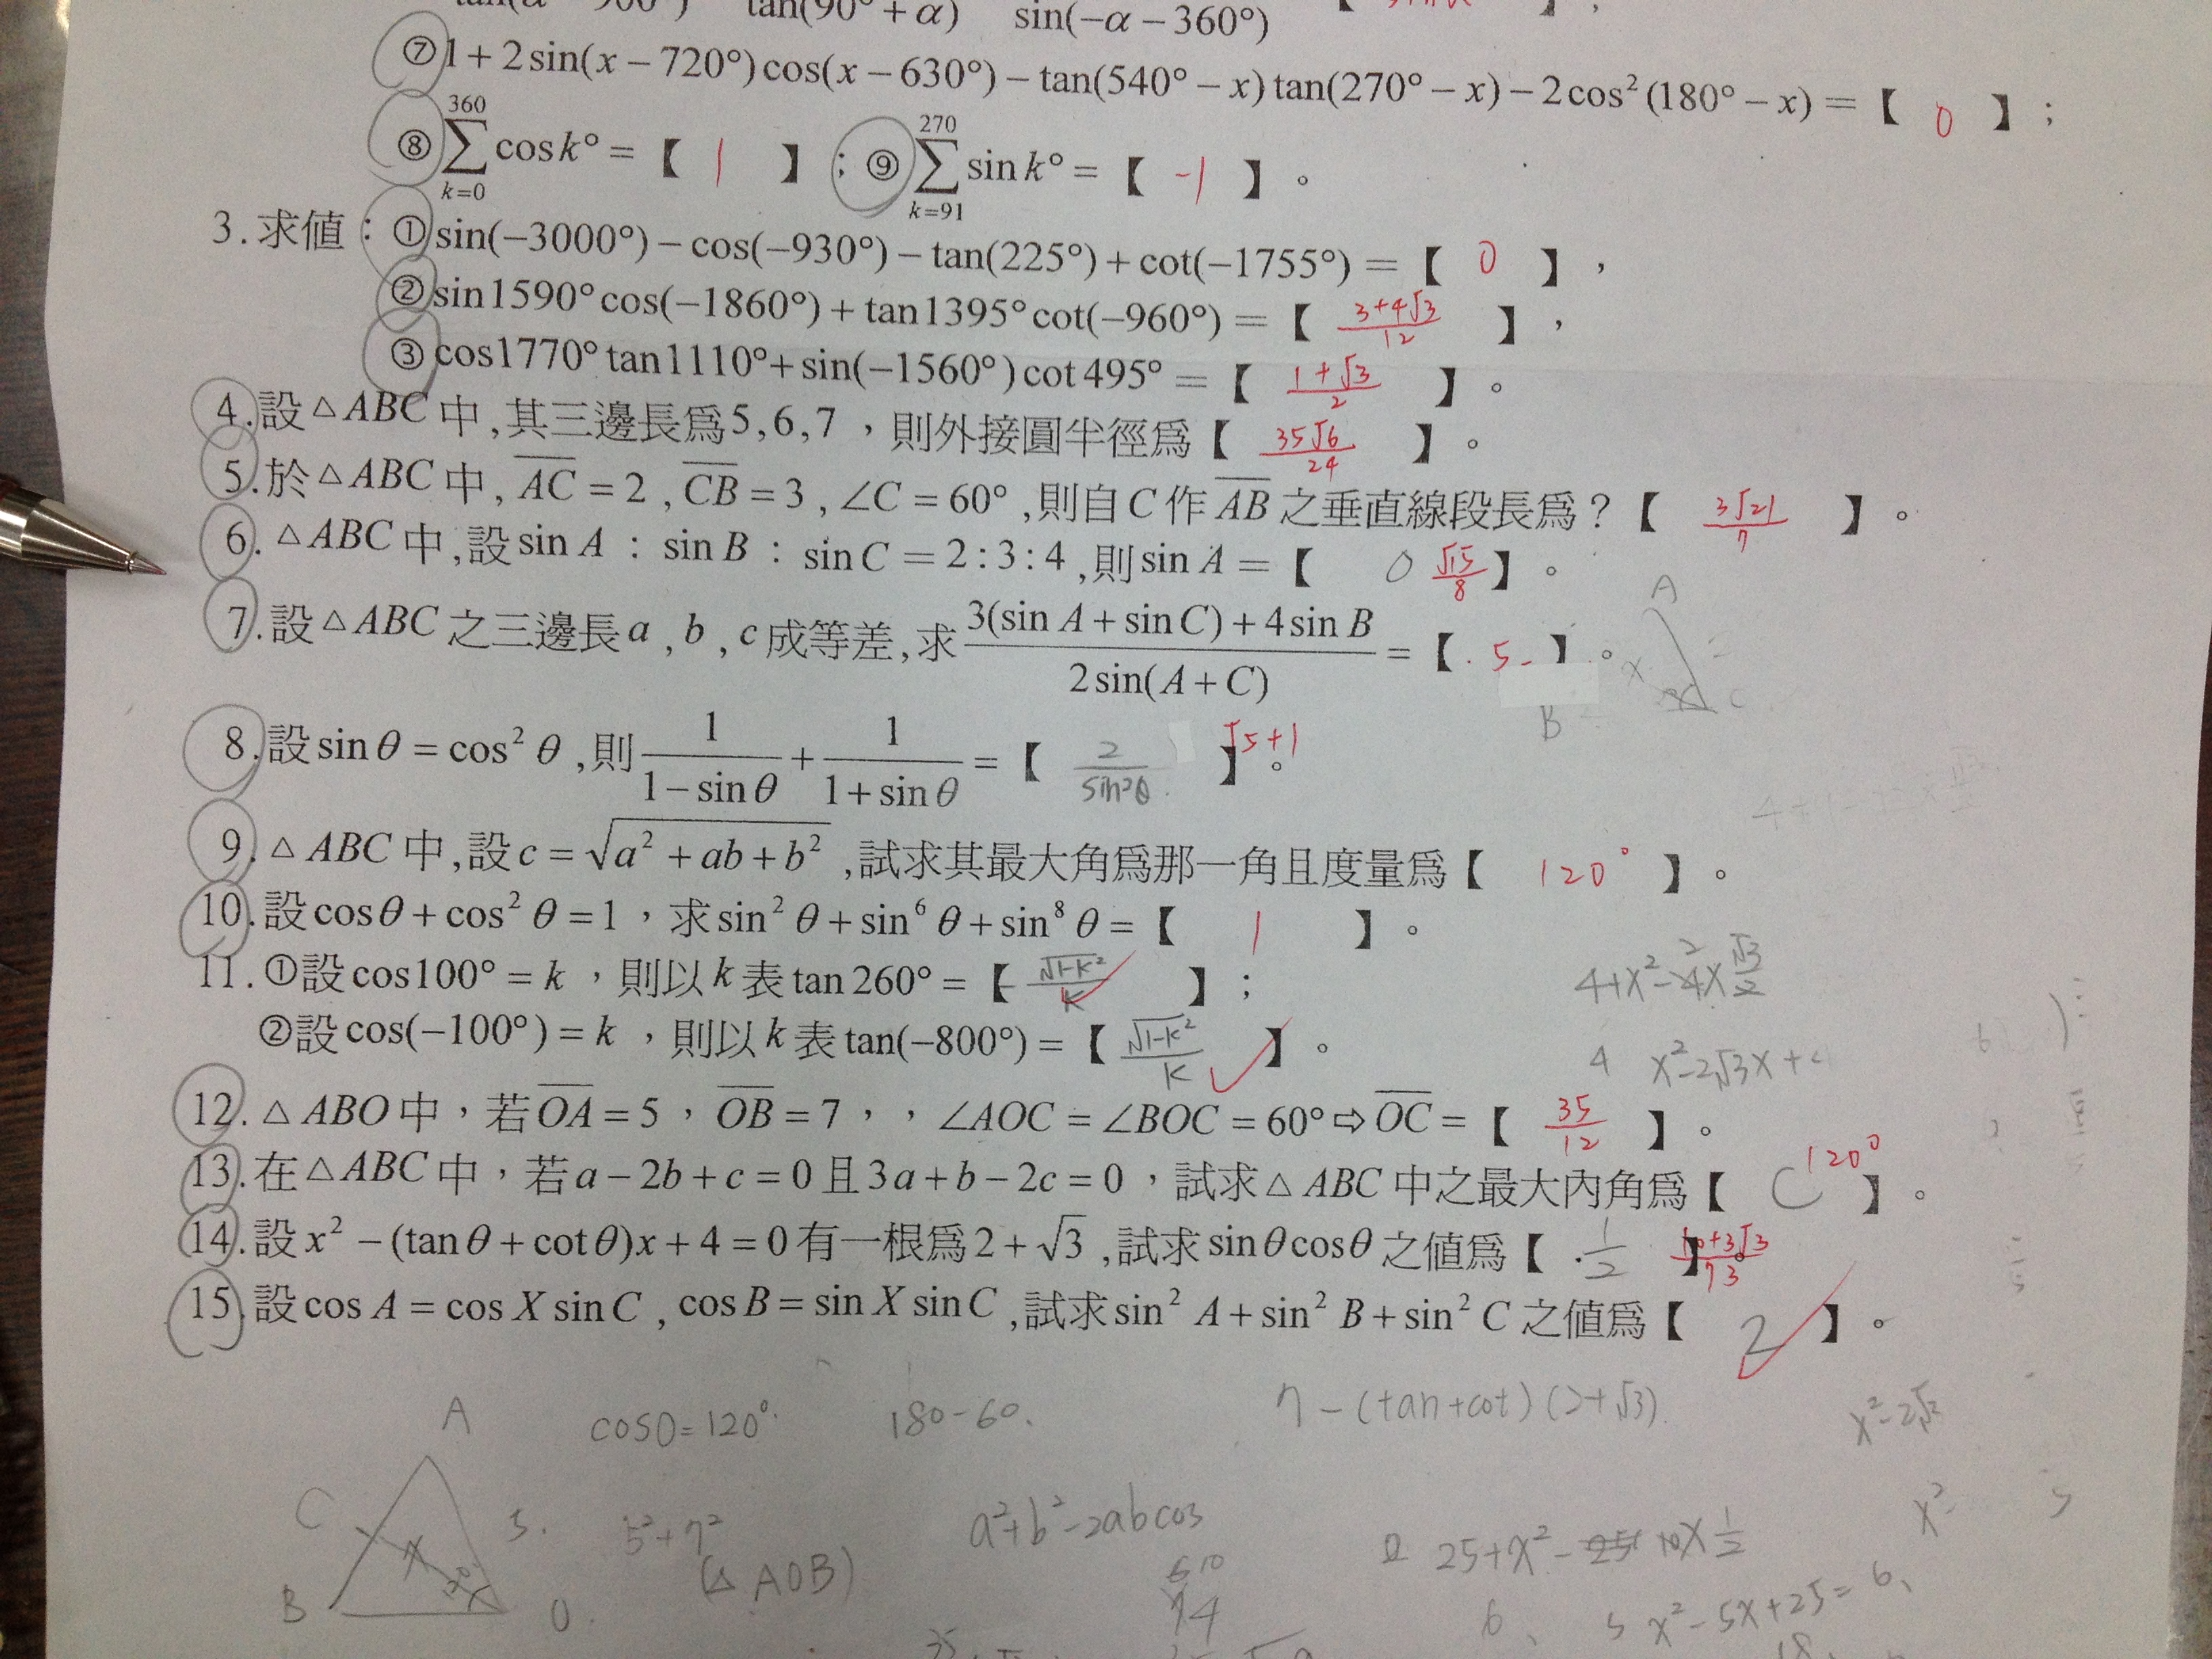 tan(90°+α) sin(−α−360°)
⑦1+2sin(x−720°)cos(x−630°)−tan(540°−x)tan(270°−x)−2cos²(180°−x)=【 0 】;
⑧∑_{k=0}^{360} cos k°=【 1 】;⑨∑_{k=91}^{270} sin k°=【 -1 】。
3.求值:①sin(−3000°)−cos(−930°)−tan(225°)+cot(−1755°)=【 0 】,
②sin1590°cos(−1860°)+tan1395°cot(−960°)=【 (3+4√3)/12 】,
③cos1770°tan1110°+sin(−1560°)cot495°=【 (1+√3)/2 】。
4.設△ABC中,其三邊長爲5,6,7,則外接圓半徑爲【 35√6/24 】。
5.於△ABC中,A̅C̅=2,C̅B̅=3,∠C=60°,則自C作A̅B̅之垂直線段長爲?【 3√21/7 】。
6.△ABC中,設sin A:sin B:sin C=2:3:4,則sin A=【 0 √15/8 】。
7.設△ABC之三邊長a,b,c成等差,求 (3(sin A+sin C)+4sin B)/(2sin(A+C)) =【 5 】。
A
x
B
C
8.設sinθ=cos²θ,則 1/(1−sinθ)+1/(1+sinθ)=【 2/sin²θ 】。 √5+1
9.△ABC中,設c=√(a²+ab+b²),試求其最大角爲那一角且度量爲【 120° 】。
10.設cosθ+cos²θ=1,求sin²θ+sin⁶θ+sin⁸θ=【 1 】。
11.①設cos100°=k,則以k表tan260°=【 -√(1-k²)/k 】;
4+x²-4x √3/2
②設cos(−100°)=k,則以k表tan(−800°)=【 √(1-k²)/k 】。
4 x²-2√3x+4
12.△ABO中,若O̅A̅=5,O̅B̅=7,,∠AOC=∠BOC=60°⇨O̅C̅=【 35/12 】。
13.在△ABC中,若a−2b+c=0且3a+b−2c=0,試求△ABC中之最大內角爲【 C 120° 】。
14.設x²−(tanθ+cotθ)x+4=0有一根爲2+√3,試求sinθcosθ之值爲【 1/2 】。
15.設cos A=cos X sin C,cos B=sin X sin C,試求sin²A+sin²B+sin²C之值爲【 2 】。
A
cosO=120°
180-60
7-(tan+cot)(2+√3)
C
5
5²+7²
a²+b²-2abcos
25+x²- 10x 1/2
x²-
5
X
(△AOB)
B
O
x²-5x+25=